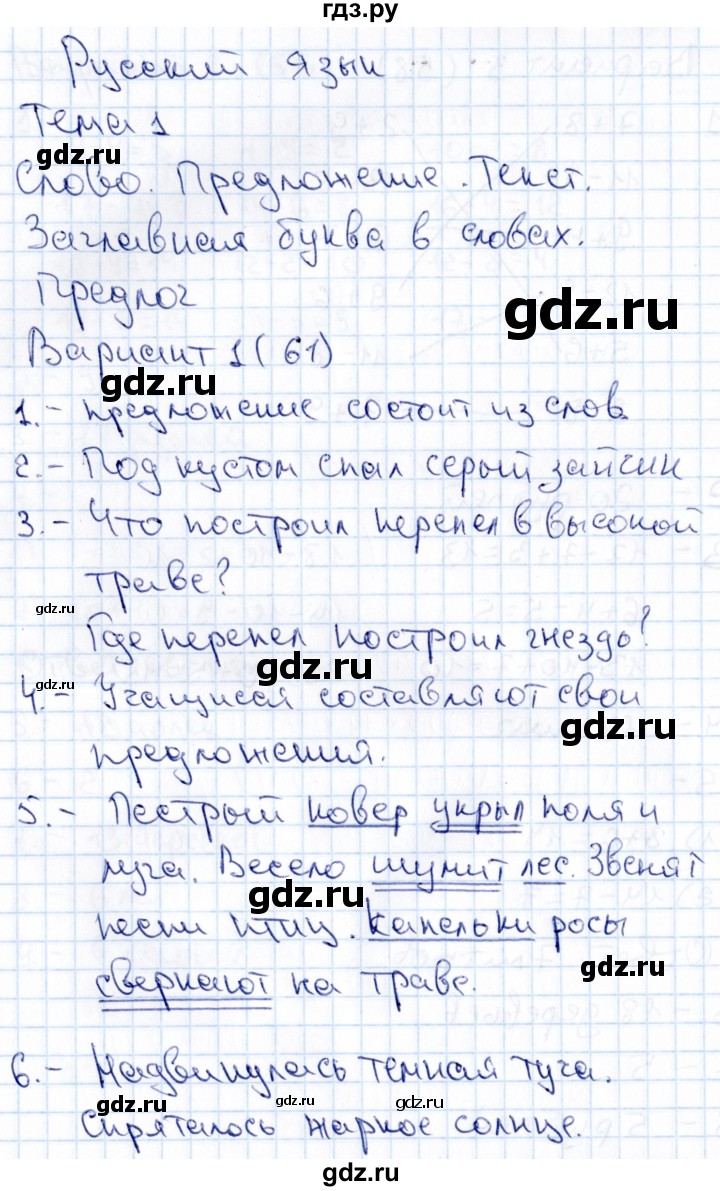 гдз.ру
Русский язык
Тема 1
gdz.ru
Слово. Предложение. Текст.
Заглавная буква в словах.
Предлог
gdz.ru
Вариант 1 (61)
gdz.ru
1.- предложение состоит из слов
2.- Под кустом спал серый зайчик
gdz.ru
3.- Что построил перепел в высокой
траве?
gdz.ru
Где перепел построил гнездо?
gdz.ru
gdz.ru
4.- Учащиеся составляют свои
gdz.ru
предложения.
5.- Пестрый ковер укрыл поля и
луга. Весело шумит лес. Звенят
gdz.ru
песни птиц. Капельки росы
gdz.ru
сверкают на траве.
6.- Надвинулась темная туча.
gdz.ru gdz.ru gdz.ru
Спряталось жаркое солнце.
gdz.ru